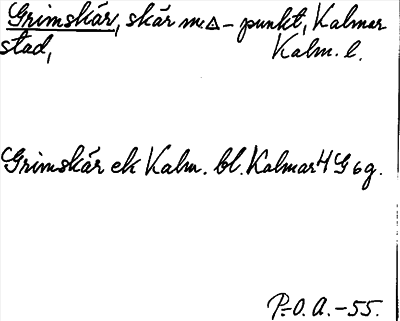 Grimskär, skär m △-punkt, Kalmar
stad, Kalm. l.
Grimskär ek Kalm. bl. Kalmar 4 G 6 g.
P.-O. A. -55.